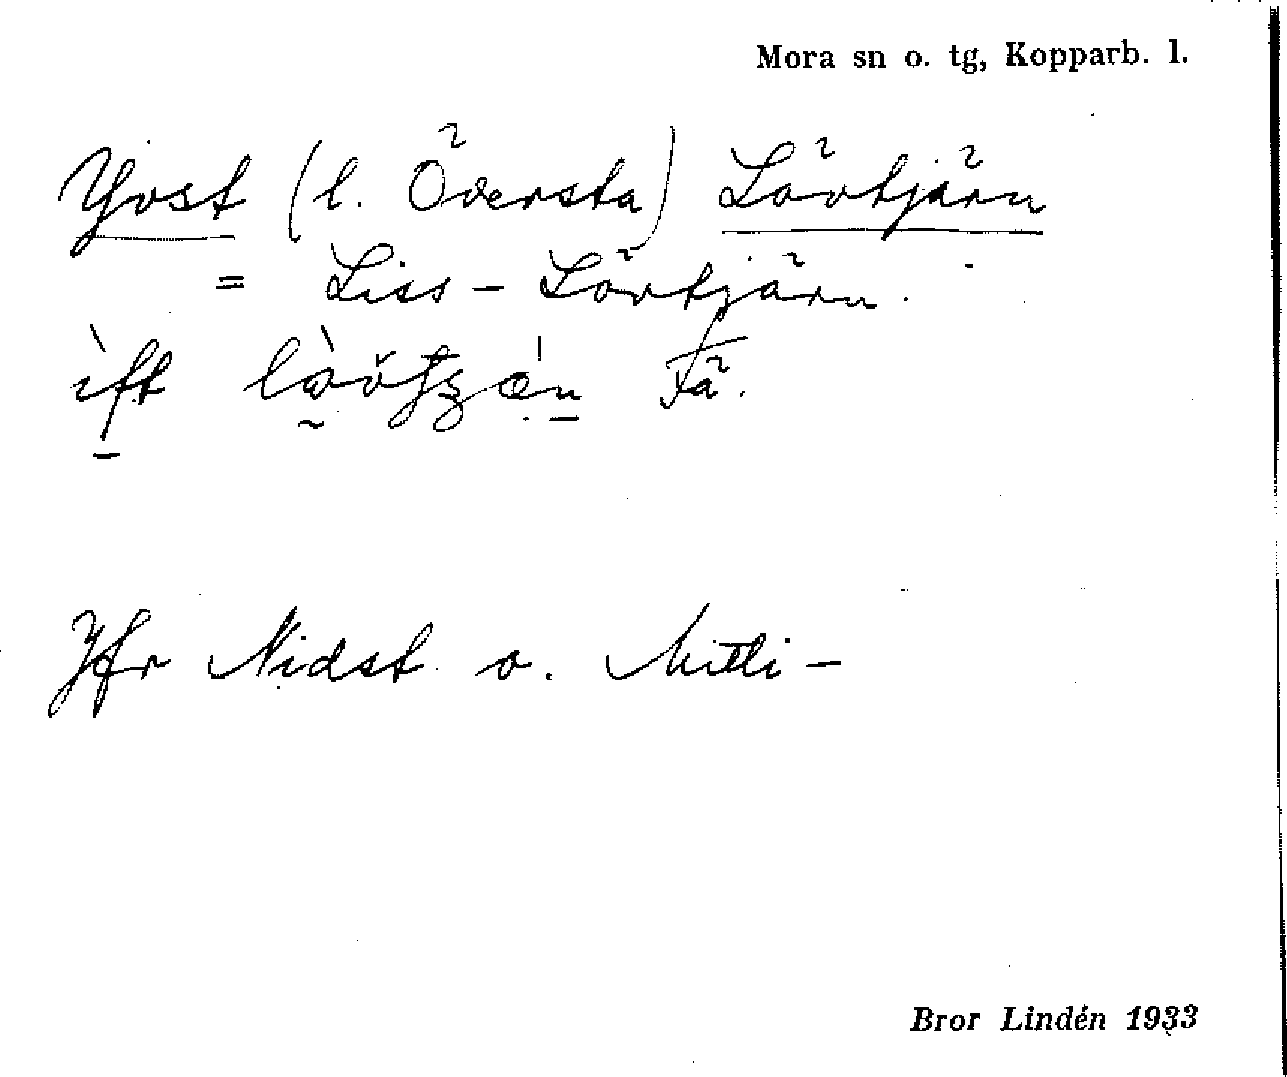 Mora sn o. tg, Kopparb. l.
Yvst (l. Översta) Lövtjärn
= Liss-Lövtjärn.
Jfr Nidst o. Mitti-
Bror Lindén 1933